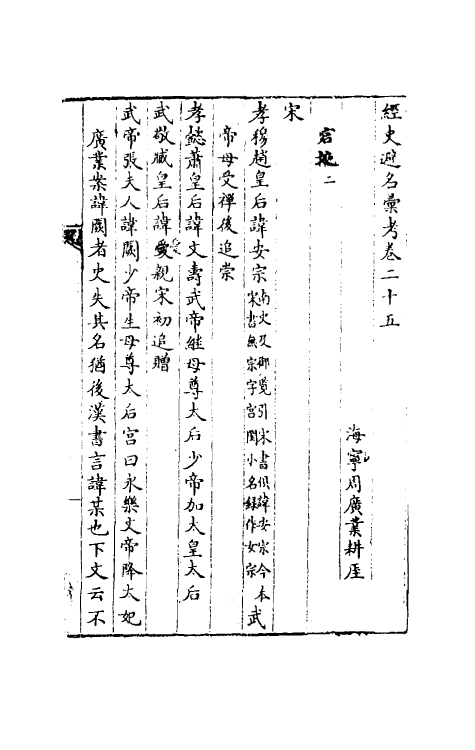 經史避名彙考卷二十五
海寧周廣業耕厓
宮掖二
宋
孝穆趙皇后諱安宗南史及御覽引宋書俱諱安宗今本宋書無宗字宮閨小名錄作女宗武
帝母受禪後追崇
孝懿蕭皇后諱文壽武帝繼母尊太后少帝加太皇太后
武敬臧皇后諱愛親宋初追贈
武帝張夫人諱闕少帝生母尊太后宮曰永樂文帝降太妃
廣業案諱闕者史失其名猶後漢書言諱某也下文云不